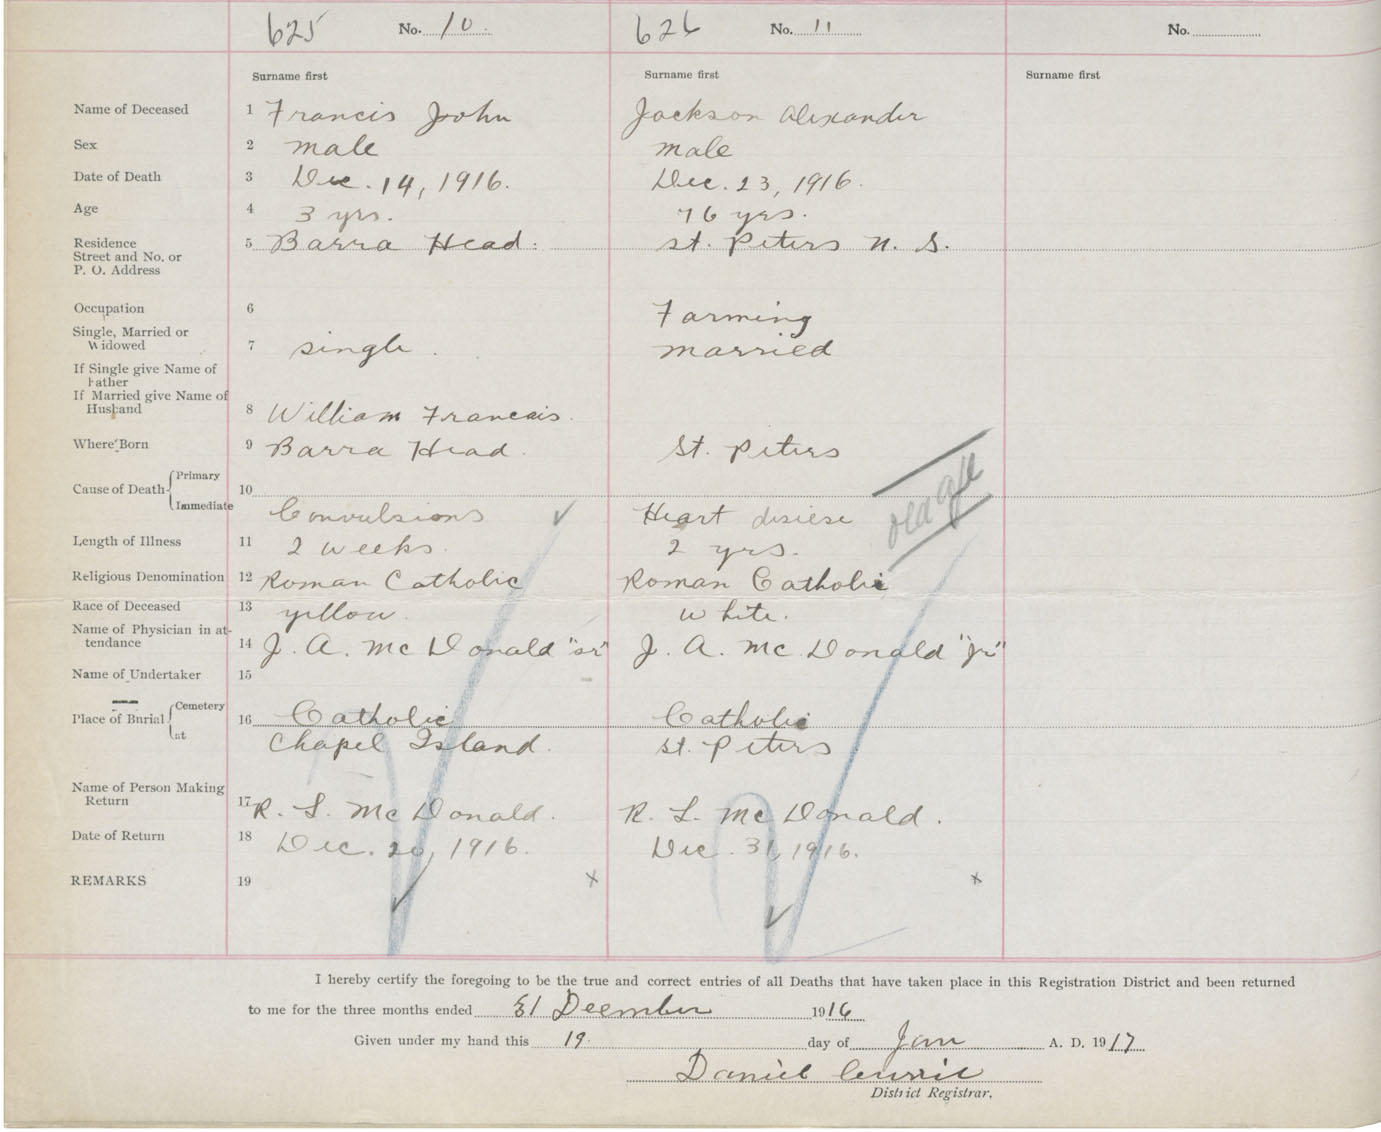 625 No. 10 626 No. 11 No.
Surname first Surname first Surname first
Name of Deceased 1 Francis John Jackson Alexander
Sex 2 male male
Date of Death 3 Dec. 14, 1916. Dec. 23, 1916.
Age 4 3 yrs. 76 yrs.
Residence 5 Barra Head. St. Peters N. S.
Street and No. or
P. O. Address
Occupation 6 Farming
Single, Married or
Widowed 7 single. married
If Single give Name of
Father
If Married give Name of
Husband 8 William Francais.
Where Born 9 Barra Head. St. Peters
Primary
Cause of Death 10 old age
Immediate Convulsions Heart disiese
Length of Illness 11 2 weeks. 2 yrs.
Religious Denomination 12 Roman Catholic Roman Catholic
Race of Deceased 13 yellow. white.
Name of Physician in at-
tendance 14 J. A. McDonald "sr" J. A. McDonald "jr"
Name of Undertaker 15
Cemetery
Place of Burial 16 Catholic Catholic
at Chapel Island. St. Peters
Name of Person Making
Return 17 R. L. McDonald. R. L. McDonald.
Date of Return 18 Dec. 20, 1916. Dec. 31, 1916.
REMARKS 19 x x
I hereby certify the foregoing to be the true and correct entries of all Deaths that have taken place in this Registration District and been returned
to me for the three months ended 31 Deember 1916
Given under my hand this 19. day of Jan A. D. 1917
Daniel Currie
District Registrar.